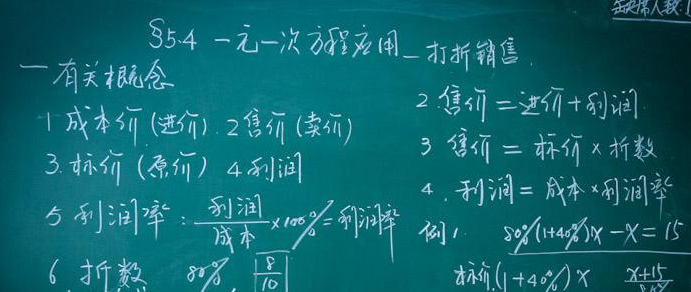 缺席人数:1
§5.4 一元一次方程应用—打折销售.
一 有关概念
1 成本价(进价). 2 售价(卖价)
3. 标价(原价) 4 利润
5 利润率: 利润/成本 ×100% = 利润率
6. 折数 80% 8/10
2 售价 = 进价 + 利润
3 售价 = 标价 × 折数
4. 利润 = 成本 × 利润率
例1. 80%(1+40%)x - x = 15
标价(1+40%)x x+15